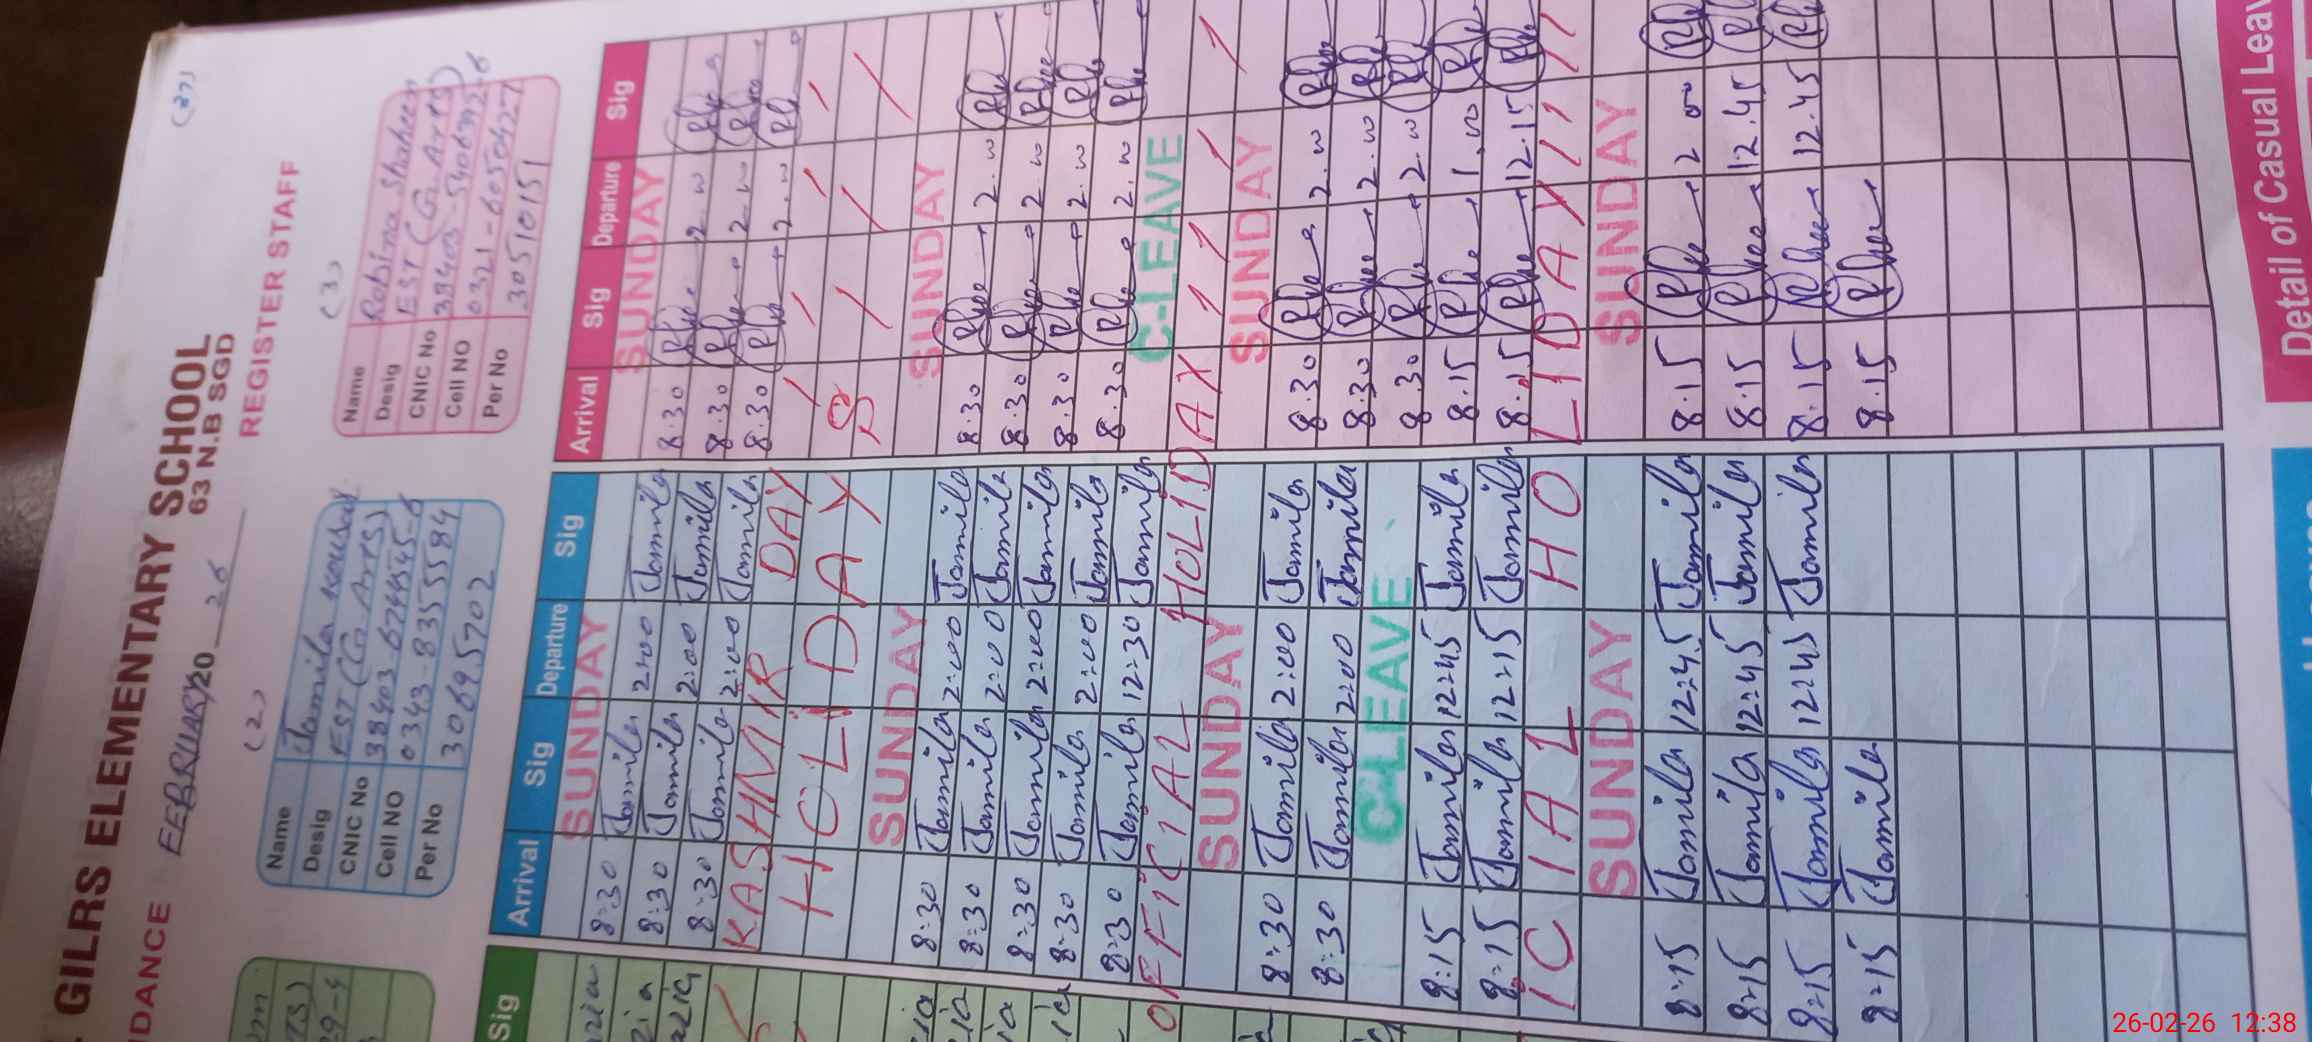 GILRS ELEMENTARY SCHOOL
63 N.B SGD
DANCE FEBRUARY 2026
REGISTER STAFF
(27)
(2)
Name Jamila Kousar
Desig EST (G.Arts)
CNIC No 38403
Cell NO 0343-8355584
Per No 30695702
(3)
Name Robina Shaheen
Desig EST (G.Arts)
CNIC No 38403-
Cell NO 0321-6050427
Per No 30510151
Sig Arrival Sig Departure Sig Arrival Sig Departure Sig
SUNDAY SUNDAY
8:30 Jamila 2:00 Jamila 8.30 2.00
8:30 Jamila 2:00 Jamila 8.30 2.00
8:30 Jamila 2:00 Jamila 8.30 2.00
KASHMIR DAY
HOLIDAY S
SUNDAY SUNDAY
8:30 Jamila 2:00 Jamila 8.30 2.00
8:30 Jamila 2:00 Jamila 8.30 2.00
8:30 Jamila 2:00 Jamila 8.30 2.00
8:30 Jamila 2:00 Jamila 8.30 2.00
8:30 Jamila 12:30 Jamila C-LEAVE
OFFICIAL HOLIDAY
SUNDAY SUNDAY
8:30 Jamila 2:00 Jamila 8.30 2.00
8:30 Jamila 2:00 Jamila 8.30 2.00
C-LEAVE 8.30 2.00
8:15 Jamila 12:45 Jamila 8.15 1.00
8:15 Jamila 12:15 Jamila 8.15 12.15
ICIAL HOLIDAY
SUNDAY SUNDAY
8:15 Jamila 12:45 Jamila 8.15 2 00
8:15 Jamila 12:45 Jamila 8.15 12.45
8:15 Jamila 12:45 Jamila 8.15 12.45
8:15 Jamila 8.15
Detail of Casual Leav
26-02-26 12:38